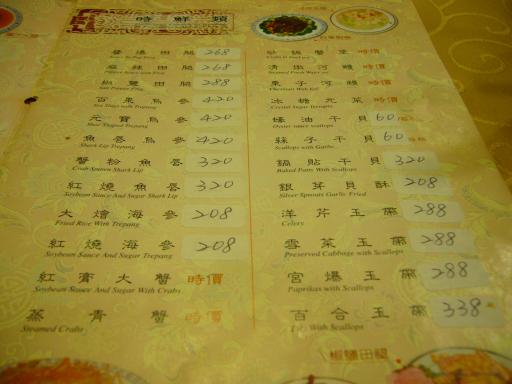 時鮮類
田腿 268
麻辣田腿 268
椒鹽田腿 288
百果烏參 420
元寶烏參 420
Shoe Shaped Trepang
魚唇烏參 420
Shark Lip Trepang
蟹粉魚唇 320
Crab Spawn Shark Lip
紅燒魚唇 320
Soybean Sauce And Sugar Shark Lip
大燴海參 208
Fried Rice With Trepang
紅燒海參 208
Soybean Sauce And Sugar Trepang
紅膏大蟹 時價
Soybean Sauce And Sugar With Crabs
蒸青蟹 時價
Steamed Crabs
時價
清燉河鰻 時價
栗子河鰻 時價
冰糖元菜 時價
Crystal Sugar Terrapin
蠔油干貝 60
Oyster sauce scallops
蒜子干貝 60
Scallops with Garlic
鍋貼干貝 320
Baked Pans With Scallops
銀芽貝酥 208
Silver Sprouts Garlic Fried
洋芹玉帶 288
Celery
雪菜玉帶 288
Preserved Cabbage with Scallops
宮爆玉帶 288
Paprikas with Scallops
百合玉帶 338
Lily With Scallops
椒鹽田腿